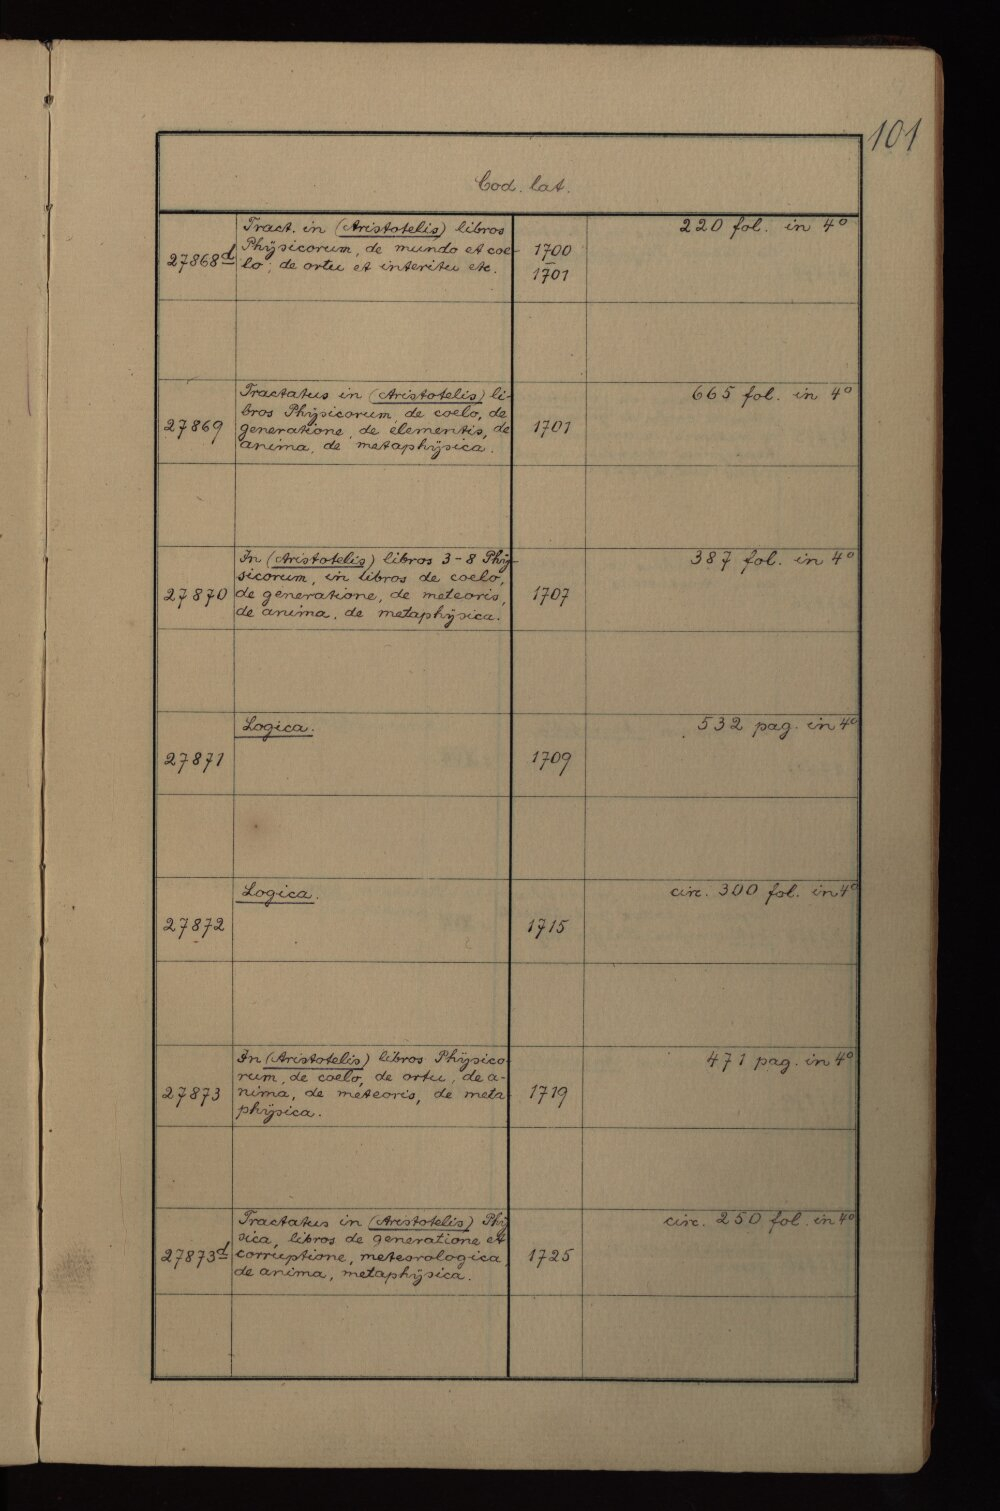 101
Cod. lat.
Tract. in (Aristotelis) libros
Physicorum, de mundo et coe-
lo; de ortu et interitu etc.
27868d
1700
1701
220 fol. in 4°
Tractatus in (Aristotelis) li-
bros Physicorum, de coelo, de
generatione, de elementis, de
anima, de metaphÿsica.
27869
1701
665 fol. in 4°
In (Aristotelis) libros 3-8 Phÿ-
sicorum, in libros de coelo,
de generatione, de meteoris,
de anima, de metaphÿsica.
27870
1707
387 fol. in 4°
Logica.
27871
1709
532 pag. in 4°
Logica.
27872
1715
circ. 300 fol. in 4°
In (Aristotelis) libros Phÿsico-
rum, de coelo, de ortu, de a-
nima, de meteoris, de meta-
phÿsica.
27873
1719
471 pag. in 4°
Tractatus in (Aristotelis) Phÿ-
sica, libros de generatione et
corruptione, meteorologica,
de anima, metaphÿsica.
27873d
1725
circ. 250 fol. in 4°